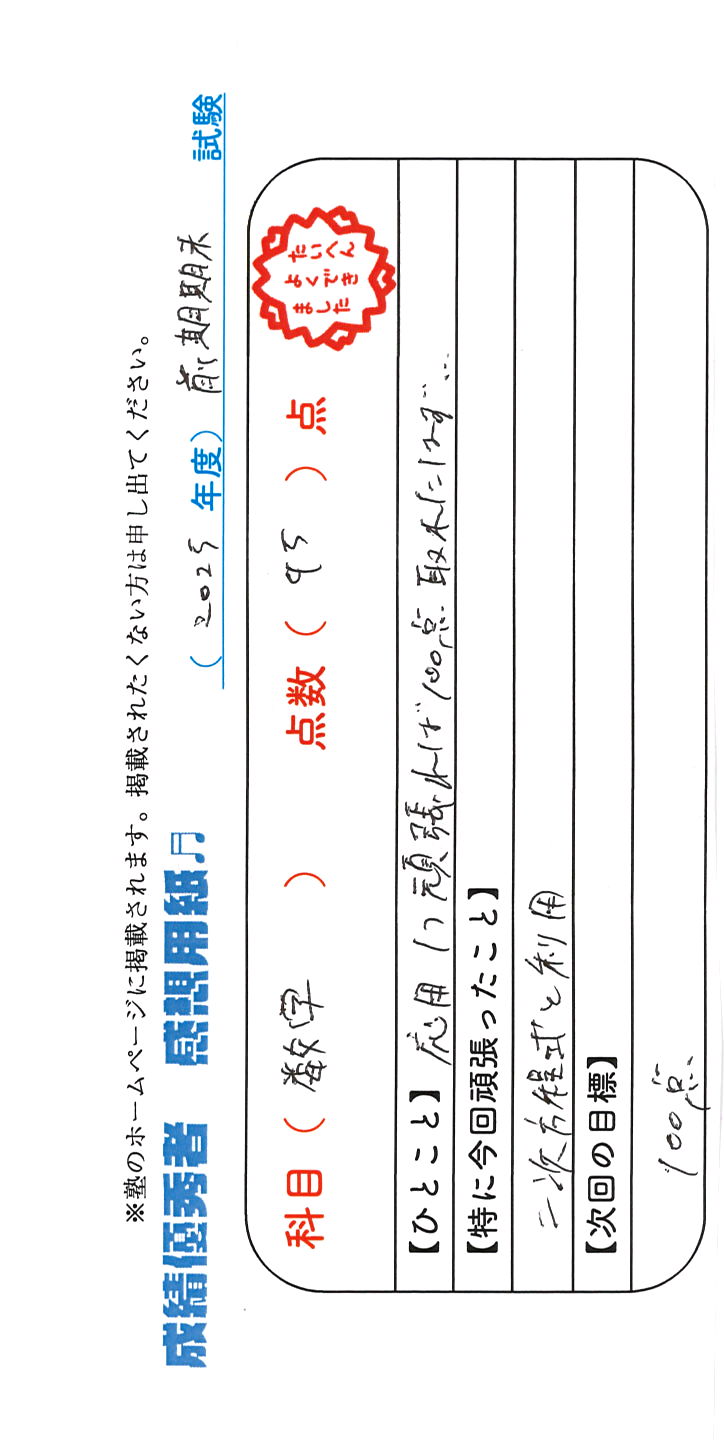 ※塾のホームページに掲載されます。掲載されたくない方は申し出てください。
成績優秀者 感想用紙♬
（2025年度）前期期末 試験
科目（ 数学 ） 点数（ 95 ）点
たいへん
よくでき
ました
【ひとこと】応用 1つ 頑張れば 100点 取れたはず……
【特に今回頑張ったこと】
二次方程式と利用
【次回の目標】
100点